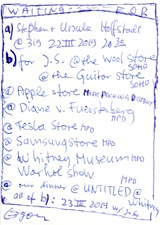 WAITING: FOR
a) Stephen + Ursula Hoffstadt
@ 319 22 III 2019 20:30
b) for J.S. @ the Wool Store
SOHO
@ the Guitar Store
SOHO
@ Apple Store
@ Diane v. Fuerstenberg
MPD
@ Tesla Store MPD
@ Samsung Store MPD
@ Whitney Museum MPD
Warhol show
@ our dinner @ UNTITLED @
Whitney
all of b): 23 III 2019 w/ J.S.